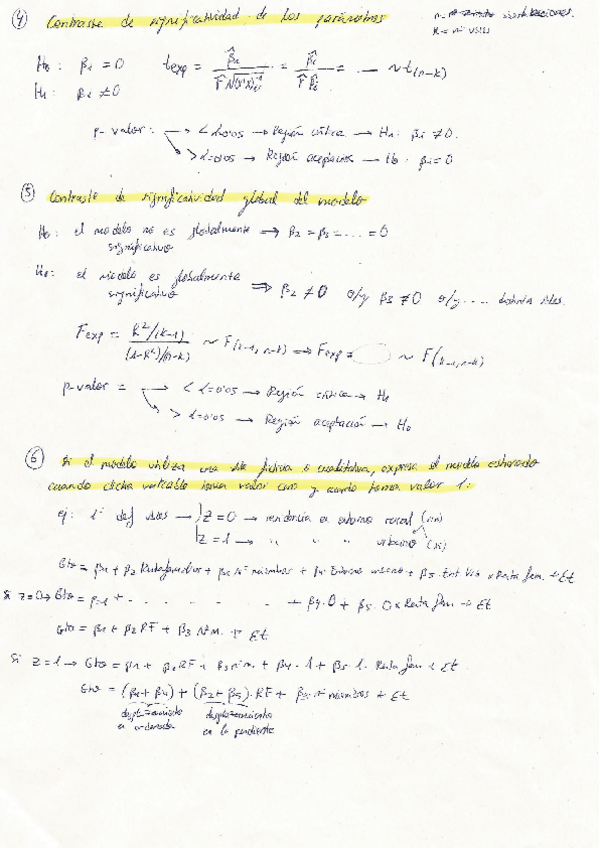 ④ Contraste de significatividad de los parámetros
k = nº vbles
H₀: βi = 0    texp = β̂i / = β̂i / = ... ~ t(n-k)
H₁: βi ≠ 0
p-valor: → < α=0'05 → Región crítica → H₁: βi ≠ 0.
→ > α=0'05 → Región aceptación → H₀: βi = 0
⑤ Contraste de significatividad global del modelo
H₀: el modelo no es globalmente significativo ⇒ β2 = β3 = .... = 0
H₀: el modelo es globalmente significativo ⇒ β2 ≠ 0 o/y β3 ≠ 0 o/y ....
Fexp = R²/(k-1) / (1-R²)/(n-k) ~ F(k-1, n-k) ⇒ Fexp = ~ F(k-1, n-k)
p-valor = → < α=0'05 → Región crítica → H₁
→ > α=0'05 → Región aceptación → H₀
⑥ Si el modelo utiliza una vble ficticia o cualitativa, expresa el modelo estimado
cuando dicha variable toma valor cero y cuando toma valor 1:
ej: 1º def vbles → Z = 0 → residencia en entorno rural (no)
Z = 1 → " " " urbano (si)
Gto = β1 + β2 Renta familiar + β3 Nº miembros + β4 Entorno urbano + β5 Ent × Renta fam. + Et
Si z=0 → Gto = β1 + . . . . . . . + β4·0 + β5·0 × Renta fam + Et
Gto = β1 + β2 RF + β3 Nº M. + Et
Si Z=1 → Gto = β1 + β2 RF + β3 Nº m + β4·1 + β5·1·Renta fam + Et
Gto = (β1 + β4) + (β2 + β5)·RF + β3 Nº miembros + Et
desplazamiento en ordenada    desplazamiento en la pendiente